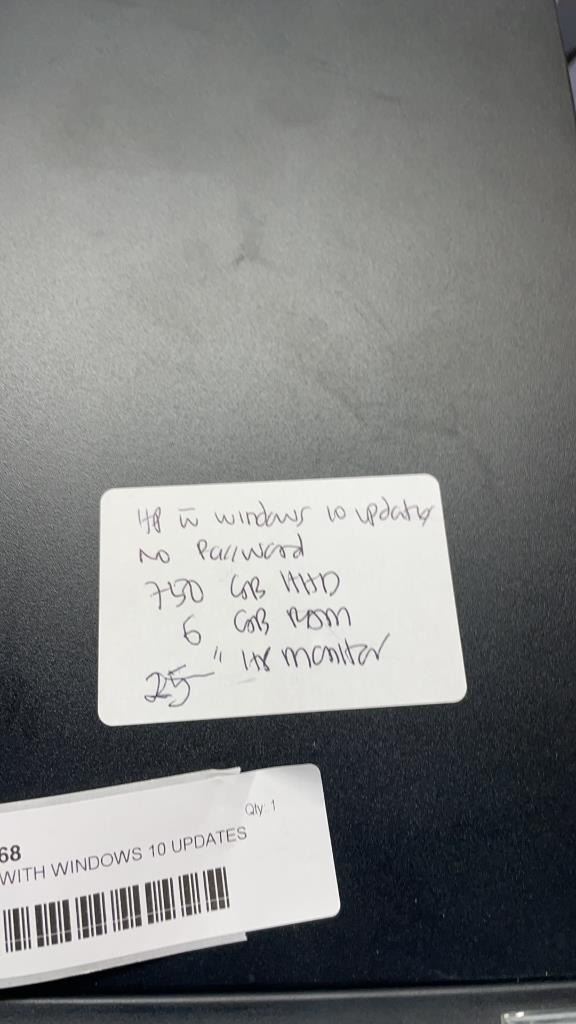 HP w windows 10 updates
No Password
750 GB HHD
6 GB RAM
25" HP monitor
Qty: 1
68
WITH WINDOWS 10 UPDATES